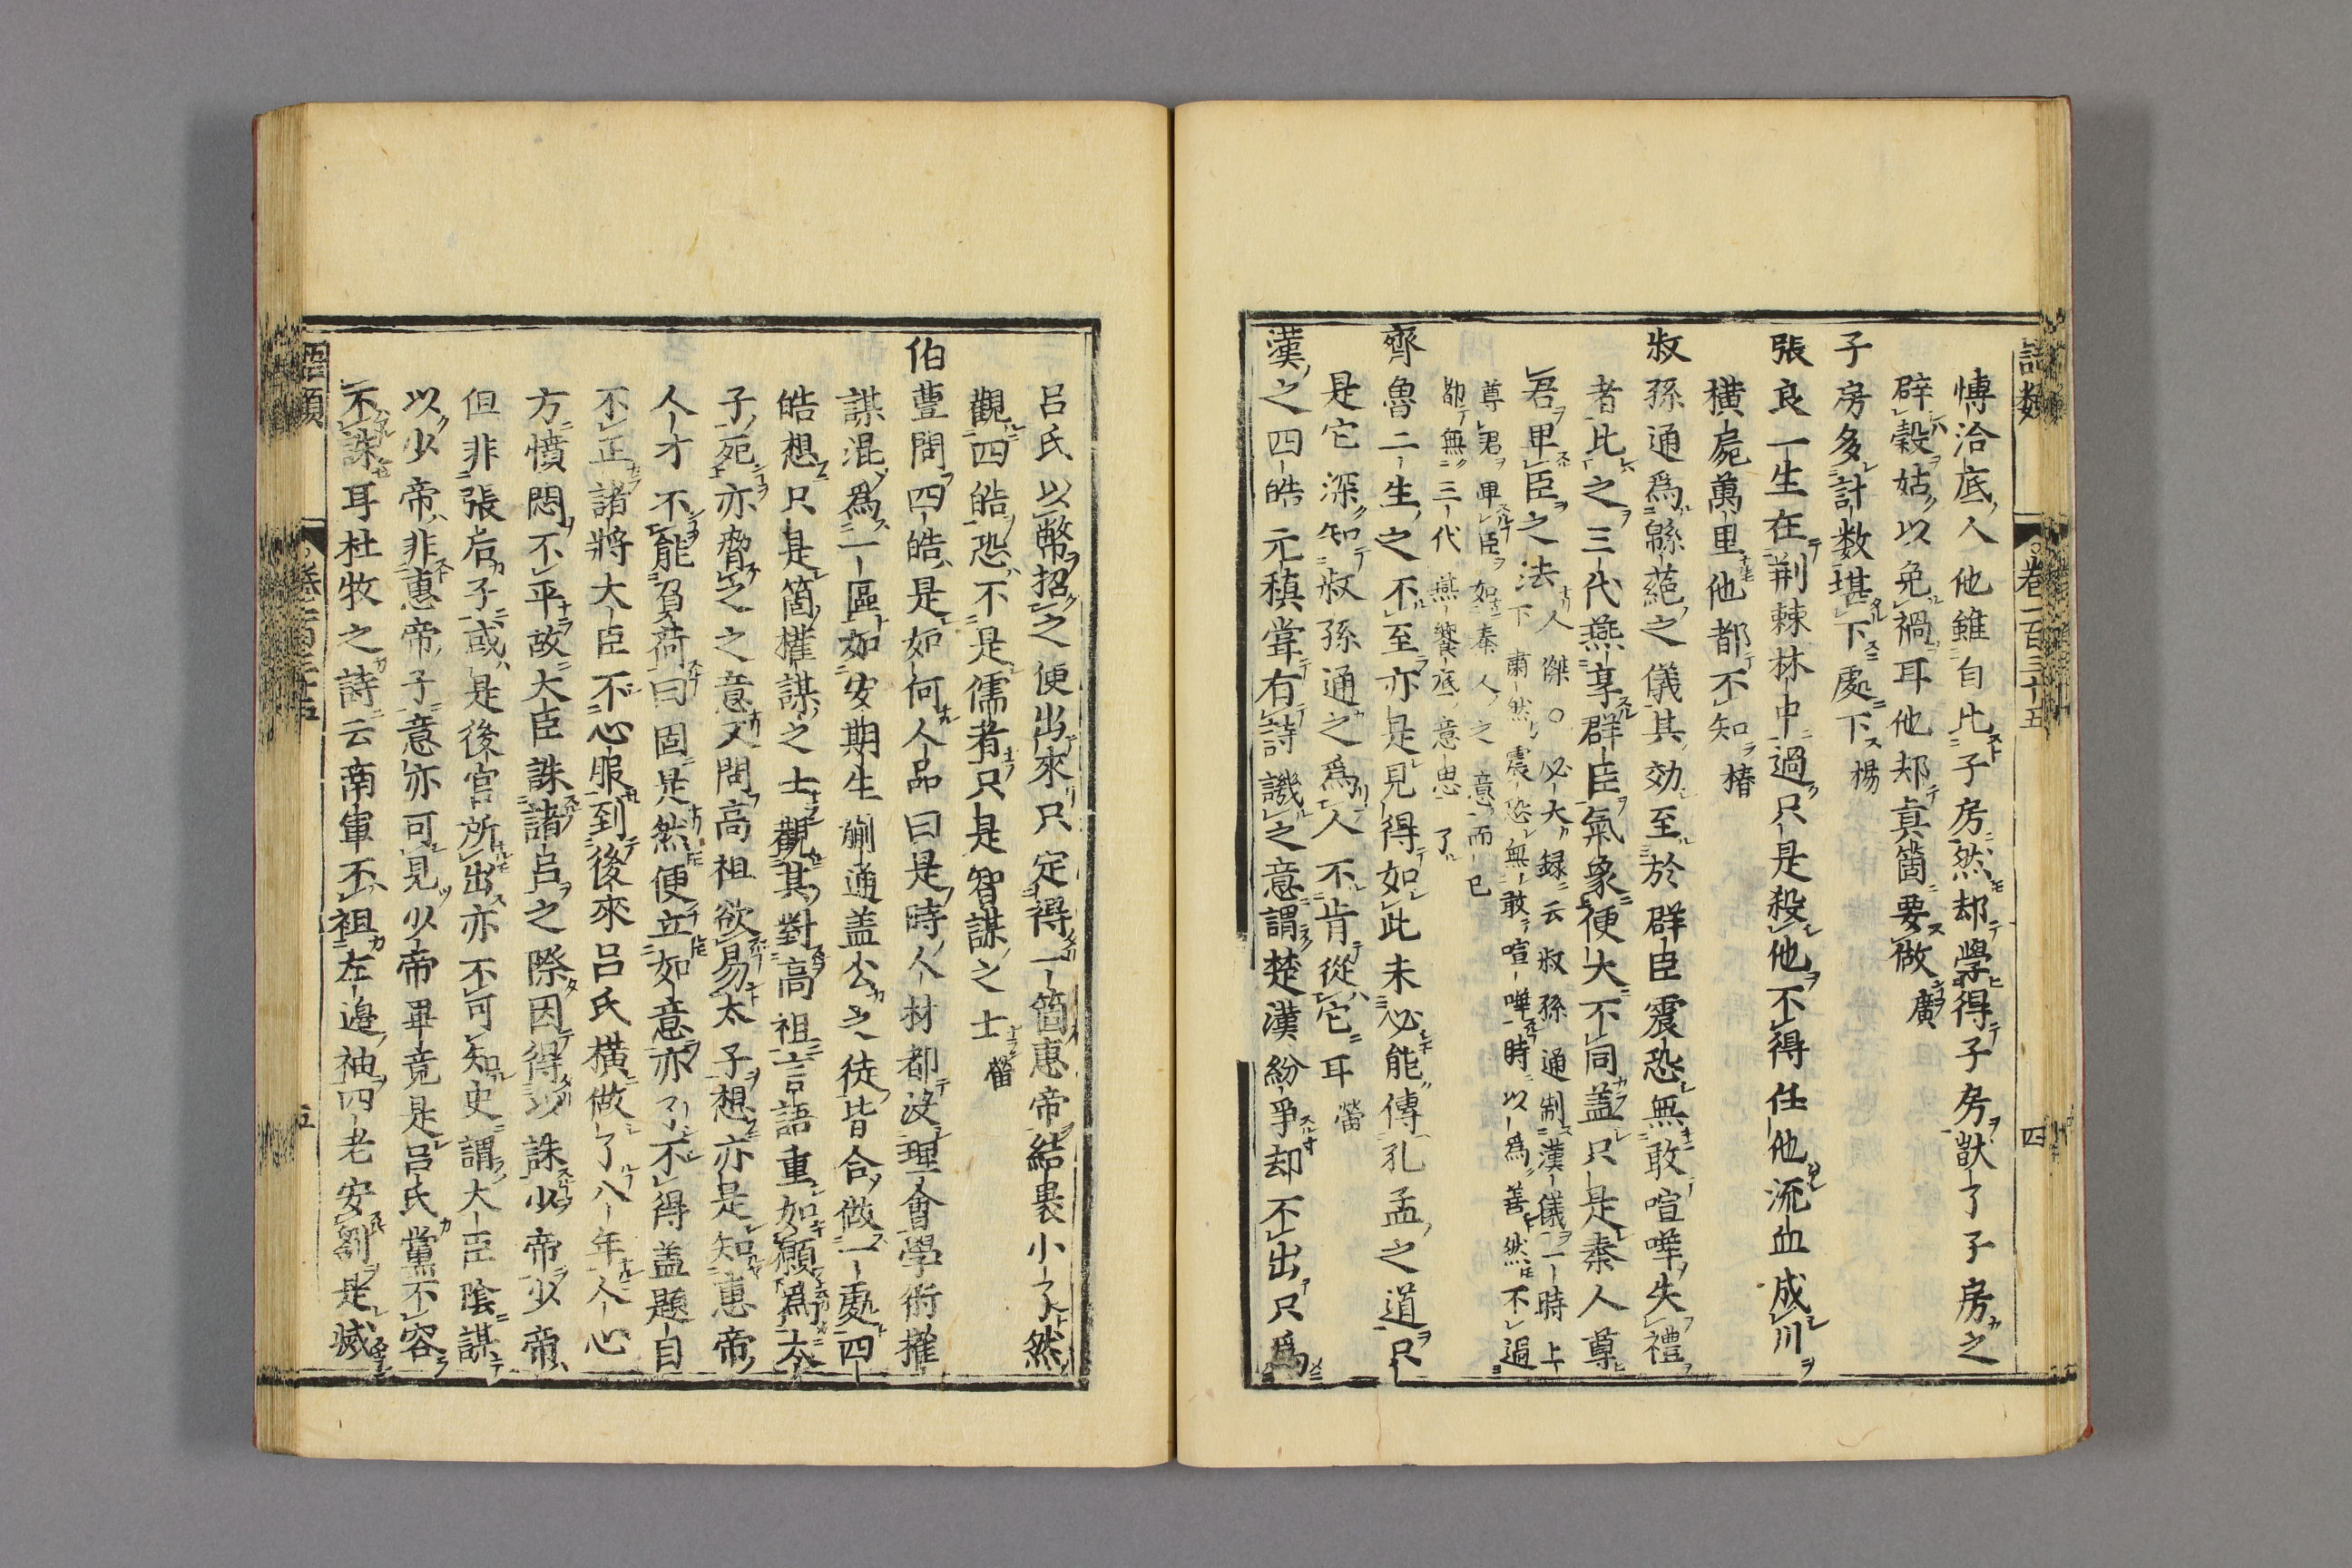 語類 卷一百三十五 四
博洽底人他雖自比子房然却學得子房獃了子房之
辟穀姑以免禍耳他却真箇要做廣
子房多計數堪下處下揚
張良一生在荆棘林中過只是殺他不得任他流血成川
横屍萬里他都不知椿
叔孫通爲緜蕝之儀其効至於群臣震恐無敢喧嘩失禮
者比之三代燕享群臣氣象便大不同盖只是秦人尊
君卑臣之法人傑○必大録云叔孫通制漢儀一時上
下肅然震恐無敢喧嘩時以爲善然不過
尊君卑臣如秦人之意而已
都無三代燕饗底意思了
齊魯二生之不至亦是見得如此未必能傳孔孟之道只
是它深知叔孫通之爲人不肯從它耳㽦
漢之四皓元稹甞有詩譏之意謂楚漢紛爭却不出只爲
吕氏以幣招之便出來只定得一箇惠帝結裹小了然
觀四皓恐不是儒者只是智謀之士㽦
伯豊問四皓是如何人品曰是時人材都没理會學術權
謀混爲一區如安期生蒯通盖公之徒皆合做一處四
皓想只是箇權謀之士觀其對高祖言語重如願爲太
子死亦脅之之意又問高祖欲易太子想亦是知惠帝
人才不能負荷曰固是然便立如意亦了不得盖題自
不正諸將大臣不心服到後來吕氏横做了八年人心
方憤悶不平故大臣誅諸吕之際因得以誅少帝少帝
但非張后子或是後宮所出亦不可知史謂大臣陰謀
以少帝非惠帝子意亦可見少帝畢竟是吕氏黨不容
不誅耳杜牧之詩云南軍不袒左邊袖四老安劉是滅
語類 卷一百三十五 五